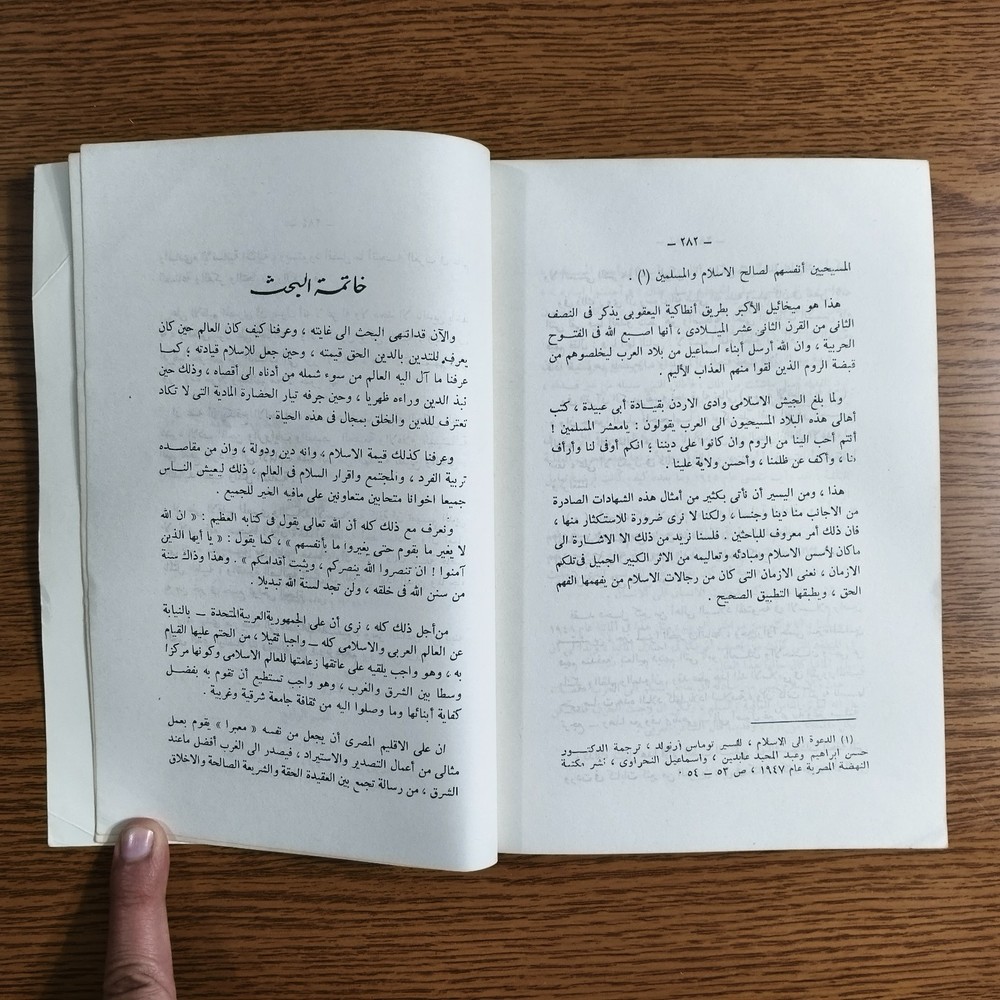 — ٢٨٢ —
المسيحيين أنفسهم لصالح الاسلام والمسلمين (١) .
هذا هو ميخائيل الأكبر بطريق أنطاكية اليعقوبى يذكر فى النصف
الثانى من القرن الثانى عشر الميلادى ، أنها اصبع الله فى الفتوح
الحربية ، وان الله أرسل أبناء اسماعيل من بلاد العرب ليخلصوهم من
قبضة الروم الذين لقوا منهم العذاب الأليم .
ولما بلغ الجيش الاسلامى وادى الاردن بقيادة أبى عبيدة ، كتب
أهالى هذه البلاد المسيحيون الى العرب يقولون : يامعشر المسلمين !
أنتم أحب الينا من الروم وان كانوا على ديننا ؛ انكم أوفى لنا وأرأف
بنا ، وأكف عن ظلمنا ، وأحسن ولاية علينا .
هذا ، ومن اليسير أن نأتى بكثير من أمثال هذه الشهادات الصادرة
من الاجانب منا دينا وجنسا ، ولكنا لا نرى ضرورة للاستكثار منها ،
فان ذلك أمر معروف للباحثين . فلسنا نريد من ذلك الا الاشارة الى
ماكان لأسس الاسلام ومبادئه وتعاليمه من الاثر الكبير الجميل فى تلكم
الازمان ، نعنى الازمان التى كان من رجالات الاسلام من يفهمها الفهم
الحق ، ويطبقها التطبيق الصحيح .
(١) الدعوة الى الاسلام ، للسير توماس أرنولد ، ترجمة الدكتور
حسن ابراهيم وعبد المجيد عابدين ، واسماعيل النحراوى ، نشر مكتبة
النهضة المصرية عام ١٩٤٧ ، ص ٥٣ — ٥٤ .
خاتمة البحث
والآن قد انتهى البحث الى غايته ، وعرفنا كيف كان العالم حين كان
يعرف للتدين بالدين الحق قيمته ، وحين جعل للاسلام قيادته ؛ كما
عرفنا ما آل اليه العالم من سوء شمله من أدناه الى أقصاه ، وذلك حين
نبذ الدين وراءه ظهريا ، وحين جرفه تيار الحضارة المادية التى لا تكاد
تعترف للدين والخلق بمجال فى هذه الحياة .
وعرفنا كذلك قيمة الاسلام ، وانه دين ودولة ، وان من مقاصده
تربية الفرد ، والمجتمع واقرار السلام فى العالم ، ذلك ليعيش الناس
جميعا اخوانا متحابين متعاونين على مافيه الخير للجميع .
ونعرف مع ذلك كله أن الله تعالى يقول فى كتابه العظيم : « ان الله
لا يغير ما بقوم حتى يغيروا ما بأنفسهم » ، كما يقول : « يا أيها الذين
آمنوا ! ان تنصروا الله ينصركم ، ويثبت أقدامكم » . وهذا وذاك سنة
من سنن الله فى خلقه ، ولن تجد لسنة الله تبديلا .
من أجل ذلك كله ، نرى أن على الجمهورية العربية المتحدة — بالنيابة
عن العالم العربى والاسلامى كله — واجبا ثقيلا ، من الحتم عليها القيام
به ، وهو واجب يلقيه على عاتقها زعامتها للعالم الاسلامى وكونها مركزا
وسطا بين الشرق والغرب ، وهو واجب تستطيع أن تقوم به بفضل
كفاية أبنائها وما وصلوا اليه من ثقافة جامعة شرقية وغربية .
ان على الاقليم المصرى أن يجعل من نفسه « معبرا » يقوم بعمل
مثالى من أعمال التصدير والاستيراد ، فيصدر الى الغرب أفضل ماعند
الشرق ، من رسالة تجمع بين العقيدة الحقة والشريعة الصالحة والاخلاق